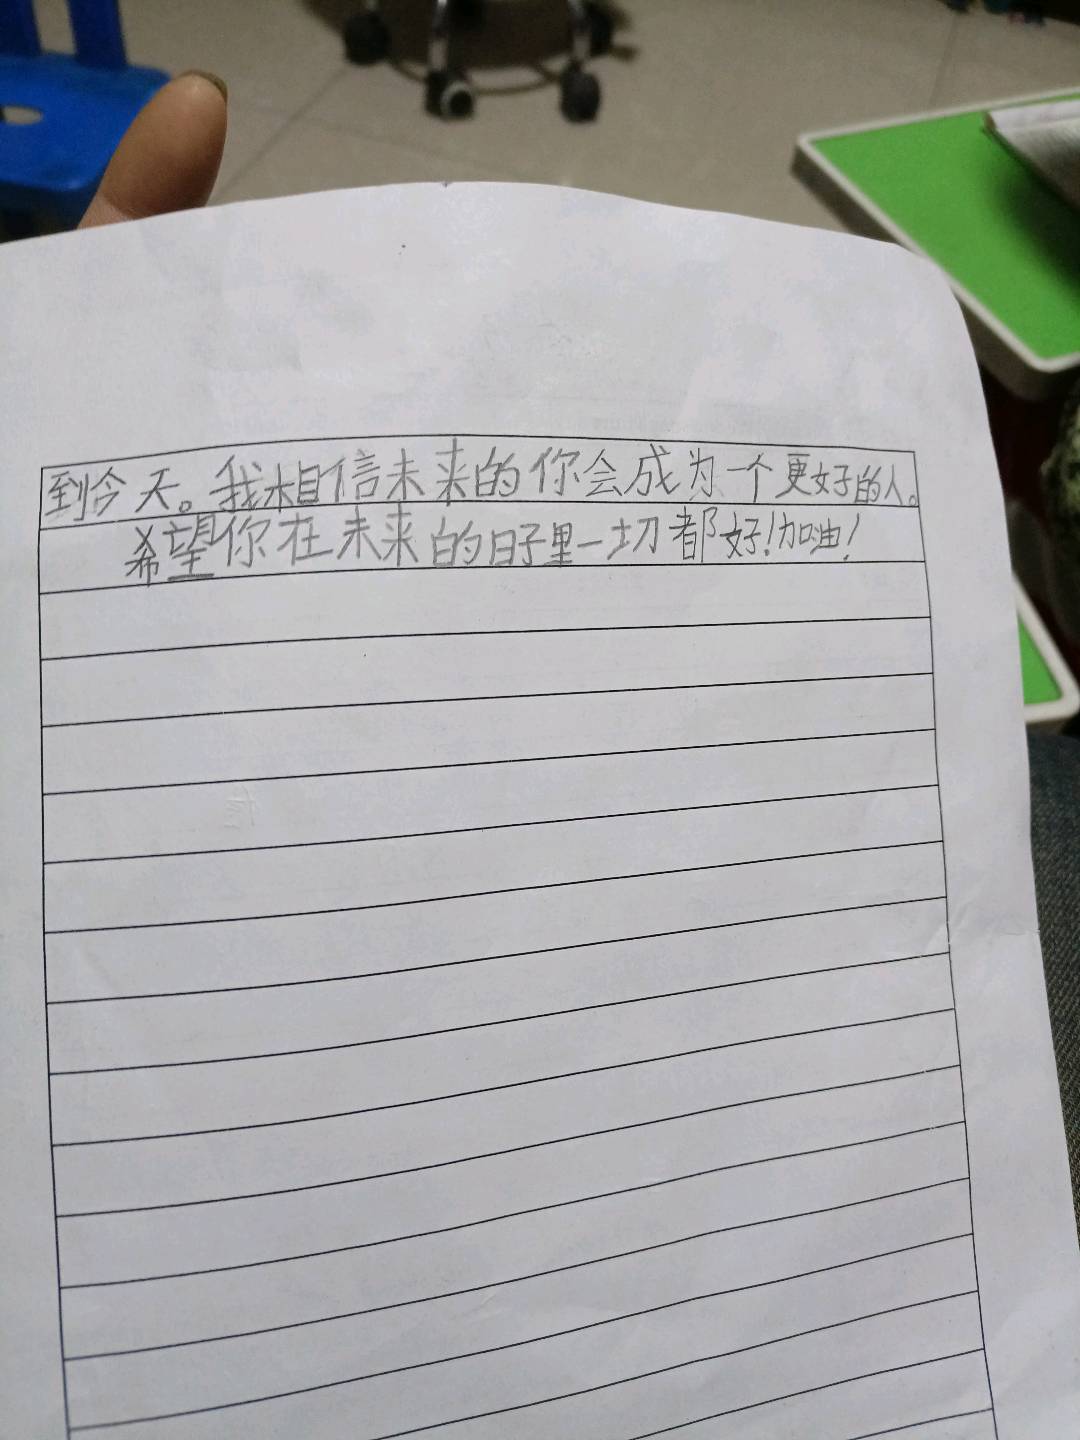 到今天。我相信未来的你会成为一个更好的人。
希望你在未来的日子里一切都好!加油!